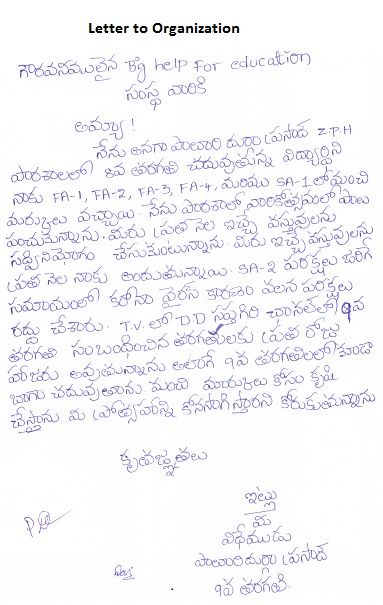 Letter to Organization
గౌరవనీయులైన Big help For education
సంస్థ వారికి
అయ్యా !
నేను అనగా పాలూరి దుర్గా ప్రసాద్ Z.P.H
పాఠశాలలో 8వ తరగతి చదువుతున్న విద్యార్థిని
నాకు FA-1, FA-2, FA-3, FA-4, మరియు SA-1 లో మంచి
మార్కులు వచ్చాయి. నేను పాఠశాలలో పాలు
పంచుకున్నాను. మీరు ప్రతి నెల ఇచ్చే వస్తువులను
సద్వినియోగం చేసుకుంటున్నాను. మీరు ఇచ్చే వస్తువులను
ప్రతి నెల నాకు అందుతున్నాయి. SA-2 పరీక్షలు జరిగే
సమయంలో కరోనా వైరస్ కారణం వలన పరీక్షలు
రద్దు చేశారు. T.V. లో DD సప్తగిరి చానల్లో 9వ
తరగతి సంబంధించిన తరగతులకు ప్రతి రోజు
హాజరు అవుతున్నాను అలాగే 9వ తరగతిలో కూడా
బాగా చదువుతాను మంచి మార్కులు కోసం కృషి
చేస్తాను మీ ప్రోత్సాహాన్ని కొనసాగిస్తారని కోరుకుతున్నాను
కృతజ్ఞతలు
ఇట్లు
మీ
విధేయుడు
పాలూరి దుర్గా ప్రసాద్
9వ తరగతి.